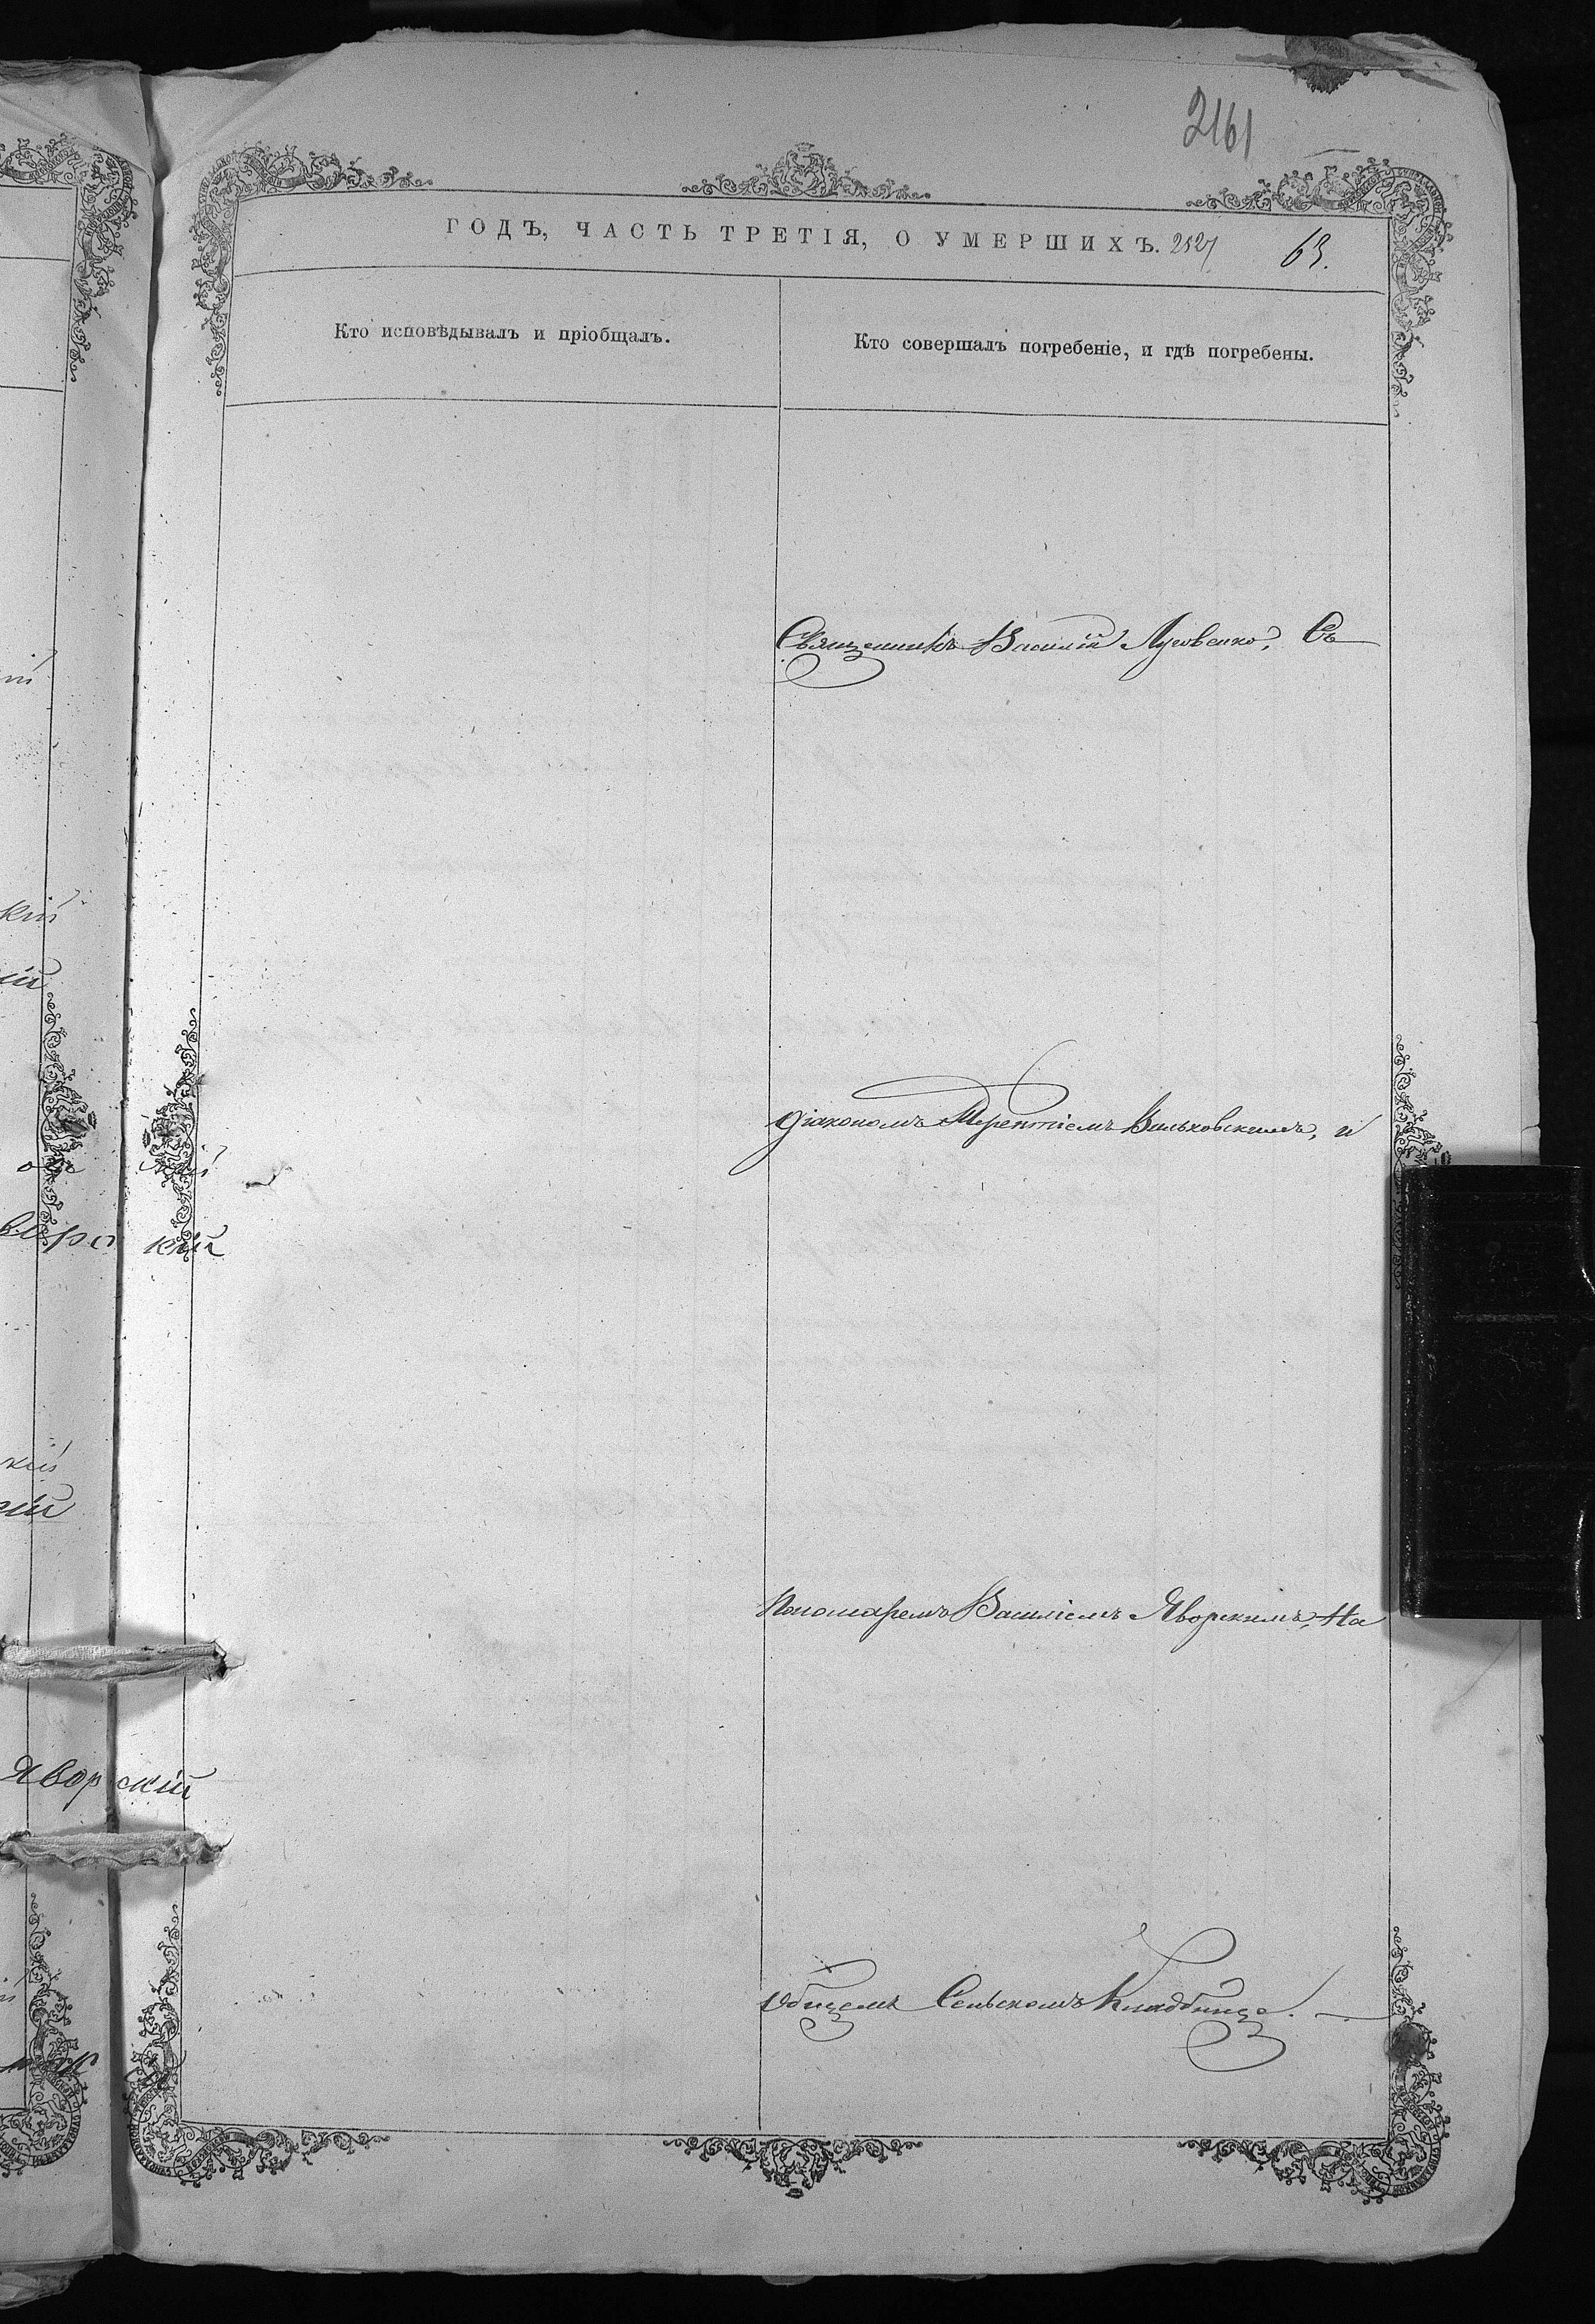 2161
ГОДЪ, ЧАСТЬ ТРЕТІЯ, О УМЕРШИХЪ. 63.
Кто исповѣдывалъ и пріобщалъ.
Кто совершалъ погребеніе, и гдѣ погребены.
Священникъ Василій Лисовенко, Съ
діакономъ Терентіемъ Вильховскимъ, и
Пономаремъ Василіемъ Яворскимъ, На
Общемъ Сельскомъ Кладбище.
кій
кій
Яворскій